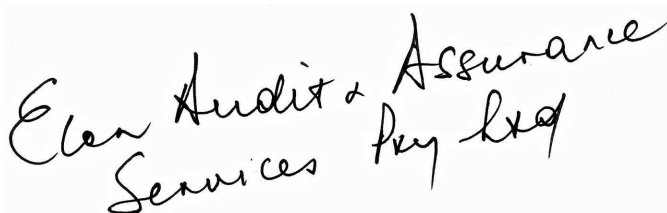 Elan Audit & Assurance
Services Pty Ltd